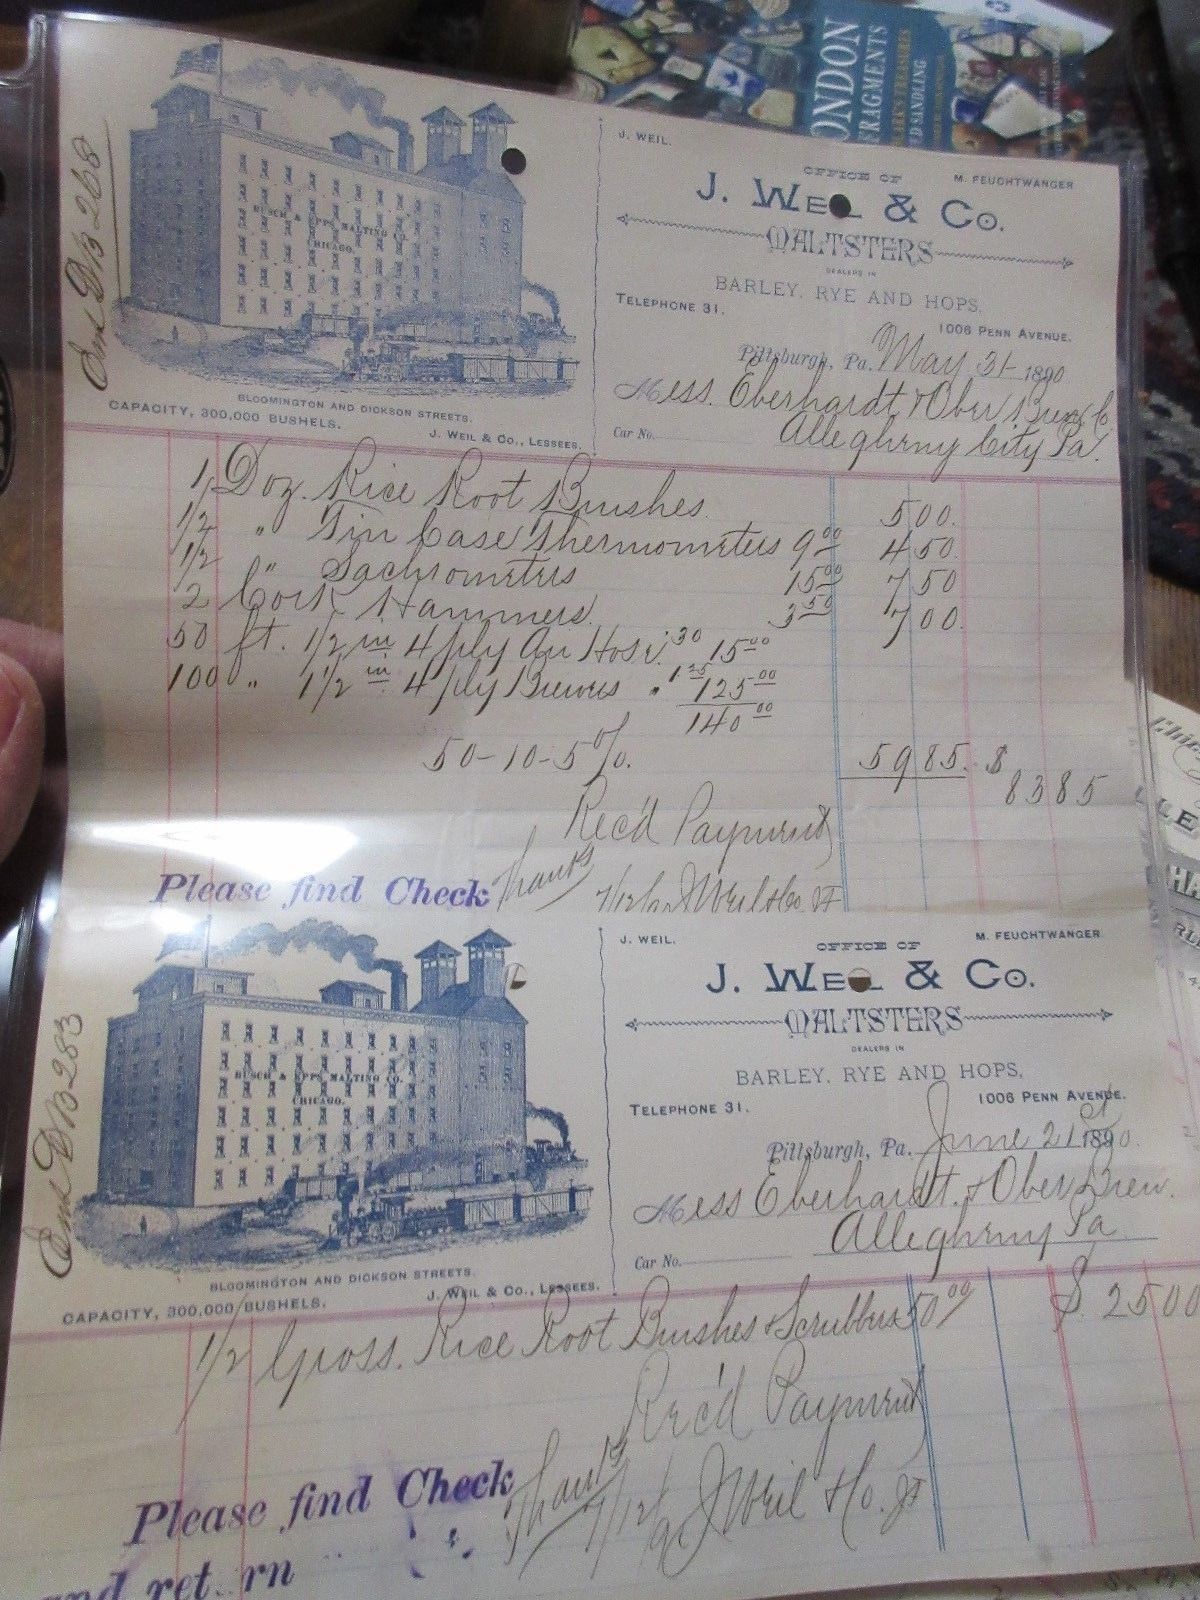 LONDON
FRAGMENTS
J. WEIL.
OFFICE OF
M. FEUCHTWANGER
J. WEIL & CO.
MALTSTERS
DEALERS IN
BARLEY, RYE AND HOPS,
TELEPHONE 31.
1006 PENN AVENUE.
Pittsburgh, Pa. May 31 1890
Mess. Eberhardt & Ober Brew. Co
Car No.
Allegheny City Pa.
BUSCH & EPPS MALTING CO.
CHICAGO.
BLOOMINGTON AND DICKSON STREETS.
CAPACITY, 300,000 BUSHELS.
J. WEIL & CO., LESSEES.
268
1 Doz. Rice Root Brushes 5 00
1/2 " Tin Case Thermometers 9 00 4 50
1/2 " Sachrometers 15 00 7 50
2 Cork Hammers 3 50 7 00
50 ft. 1/2 in 4 ply Air Hose 30 15 00
100 " 1 1/2 in 4 ply Brewers " 1 25 125 00
140 00
50-10-5%. 59 85 $
83 85
Rec'd Payment
Please find Check Thanks
7/12/90 J Weil & Co.
J. WEIL.
OFFICE OF
M. FEUCHTWANGER
J. WEIL & CO.
MALTSTERS
DEALERS IN
BARLEY, RYE AND HOPS,
TELEPHONE 31.
1006 PENN AVENUE.
Pittsburgh, Pa. June 21st 1890.
Mess Eberhardt & Ober Brew.
Allegheny Pa
Car No.
BUSCH & EPPS MALTING CO.
CHICAGO.
BLOOMINGTON AND DICKSON STREETS.
CAPACITY, 300,000 BUSHELS.
J. WEIL & CO., LESSEES.
283
1/2 Gross. Rice Root Brushes & Scrubbers 50 00 $ 25 00
Rec'd Payment
Please find Check Thanks
7/12/90 J Weil & Co.
and return